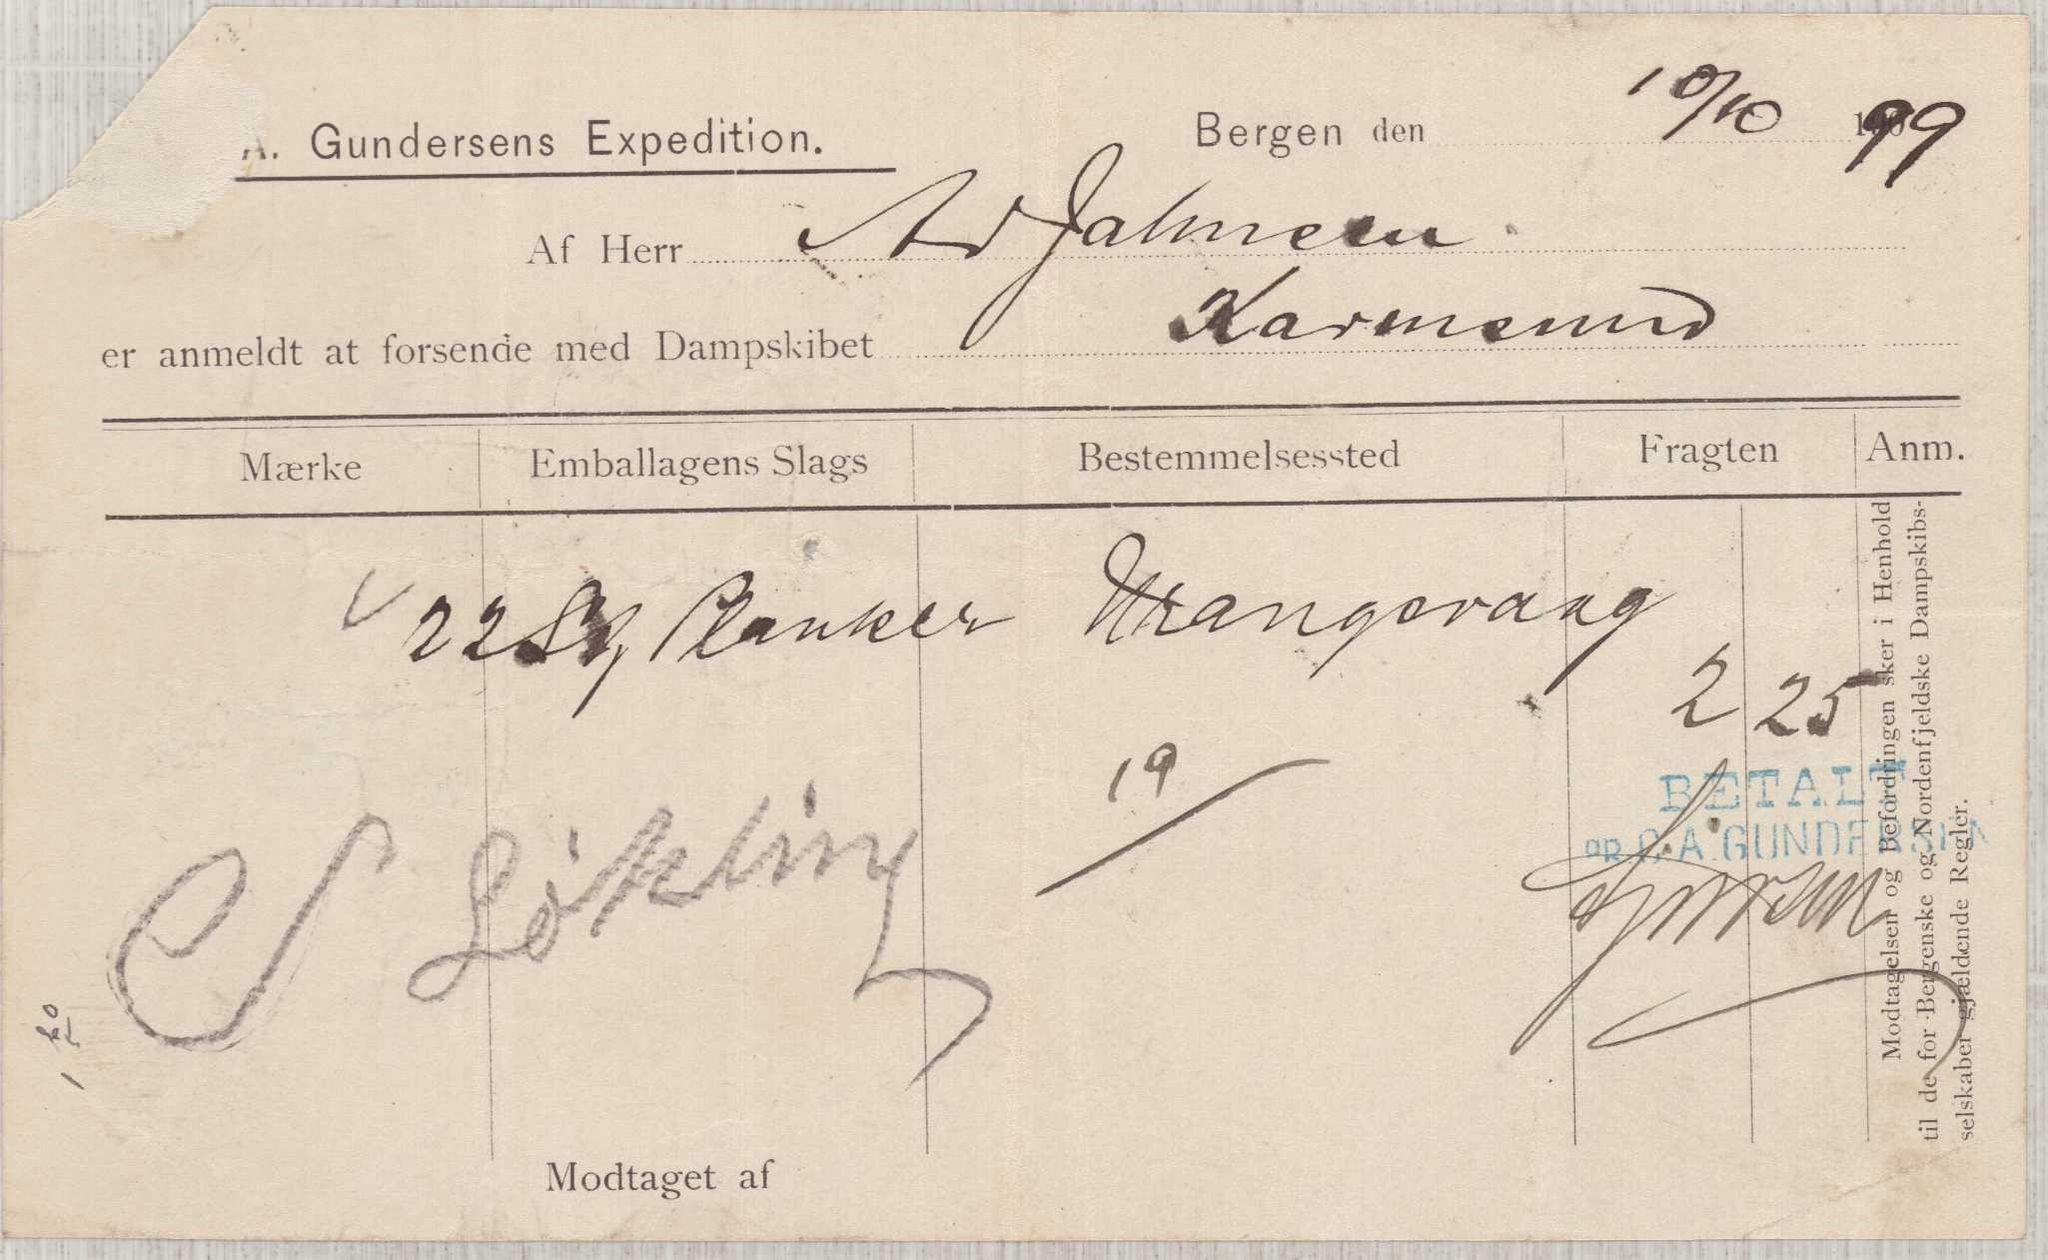 A. Gundersens Expedition.
Bergen den 10/10 99
Af Herr Ad Jahnsen
er anmeldt at forsende med Dampskibet Karmsund
Mærke Emballagens Slags Bestemmelsessted Fragten Anm.
22 Planker Vrangsvaag
2 25
19
BETALT
pr C. A. GUNDERSEN
Løkling
Modtagelsen og Befordringen sker i Henhold
til de for Bergenske og Nordenfjeldske Dampskibs-
selskaber gjældende Regler.
Modtaget af